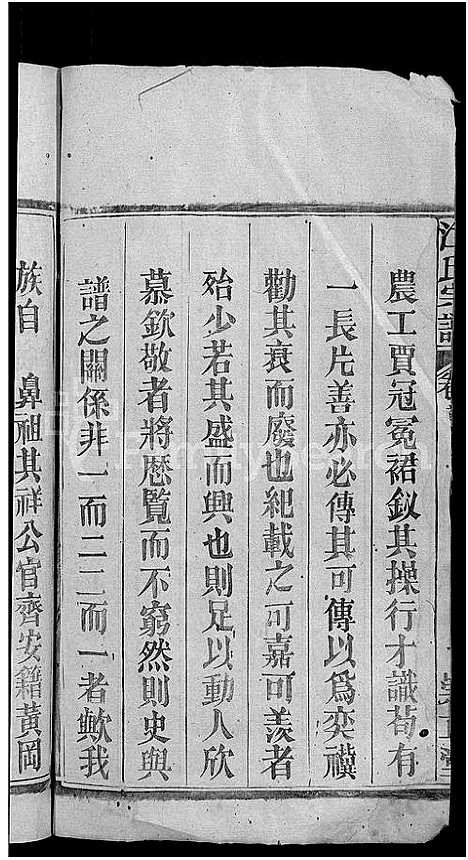 氏宗譜
農工賈冠冕裙釵其操行才識苟有
一長片善亦必傳其可傳以爲奕禩
勸其衰而廢也紀載之可嘉可羨者
殆少若其盛而興也則足以動人欣
慕欽敬者將歴覧而不窮然則史與
譜之關係非一而二二而一者歟我
族自 鼻祖其祥公官齊安籍黃岡